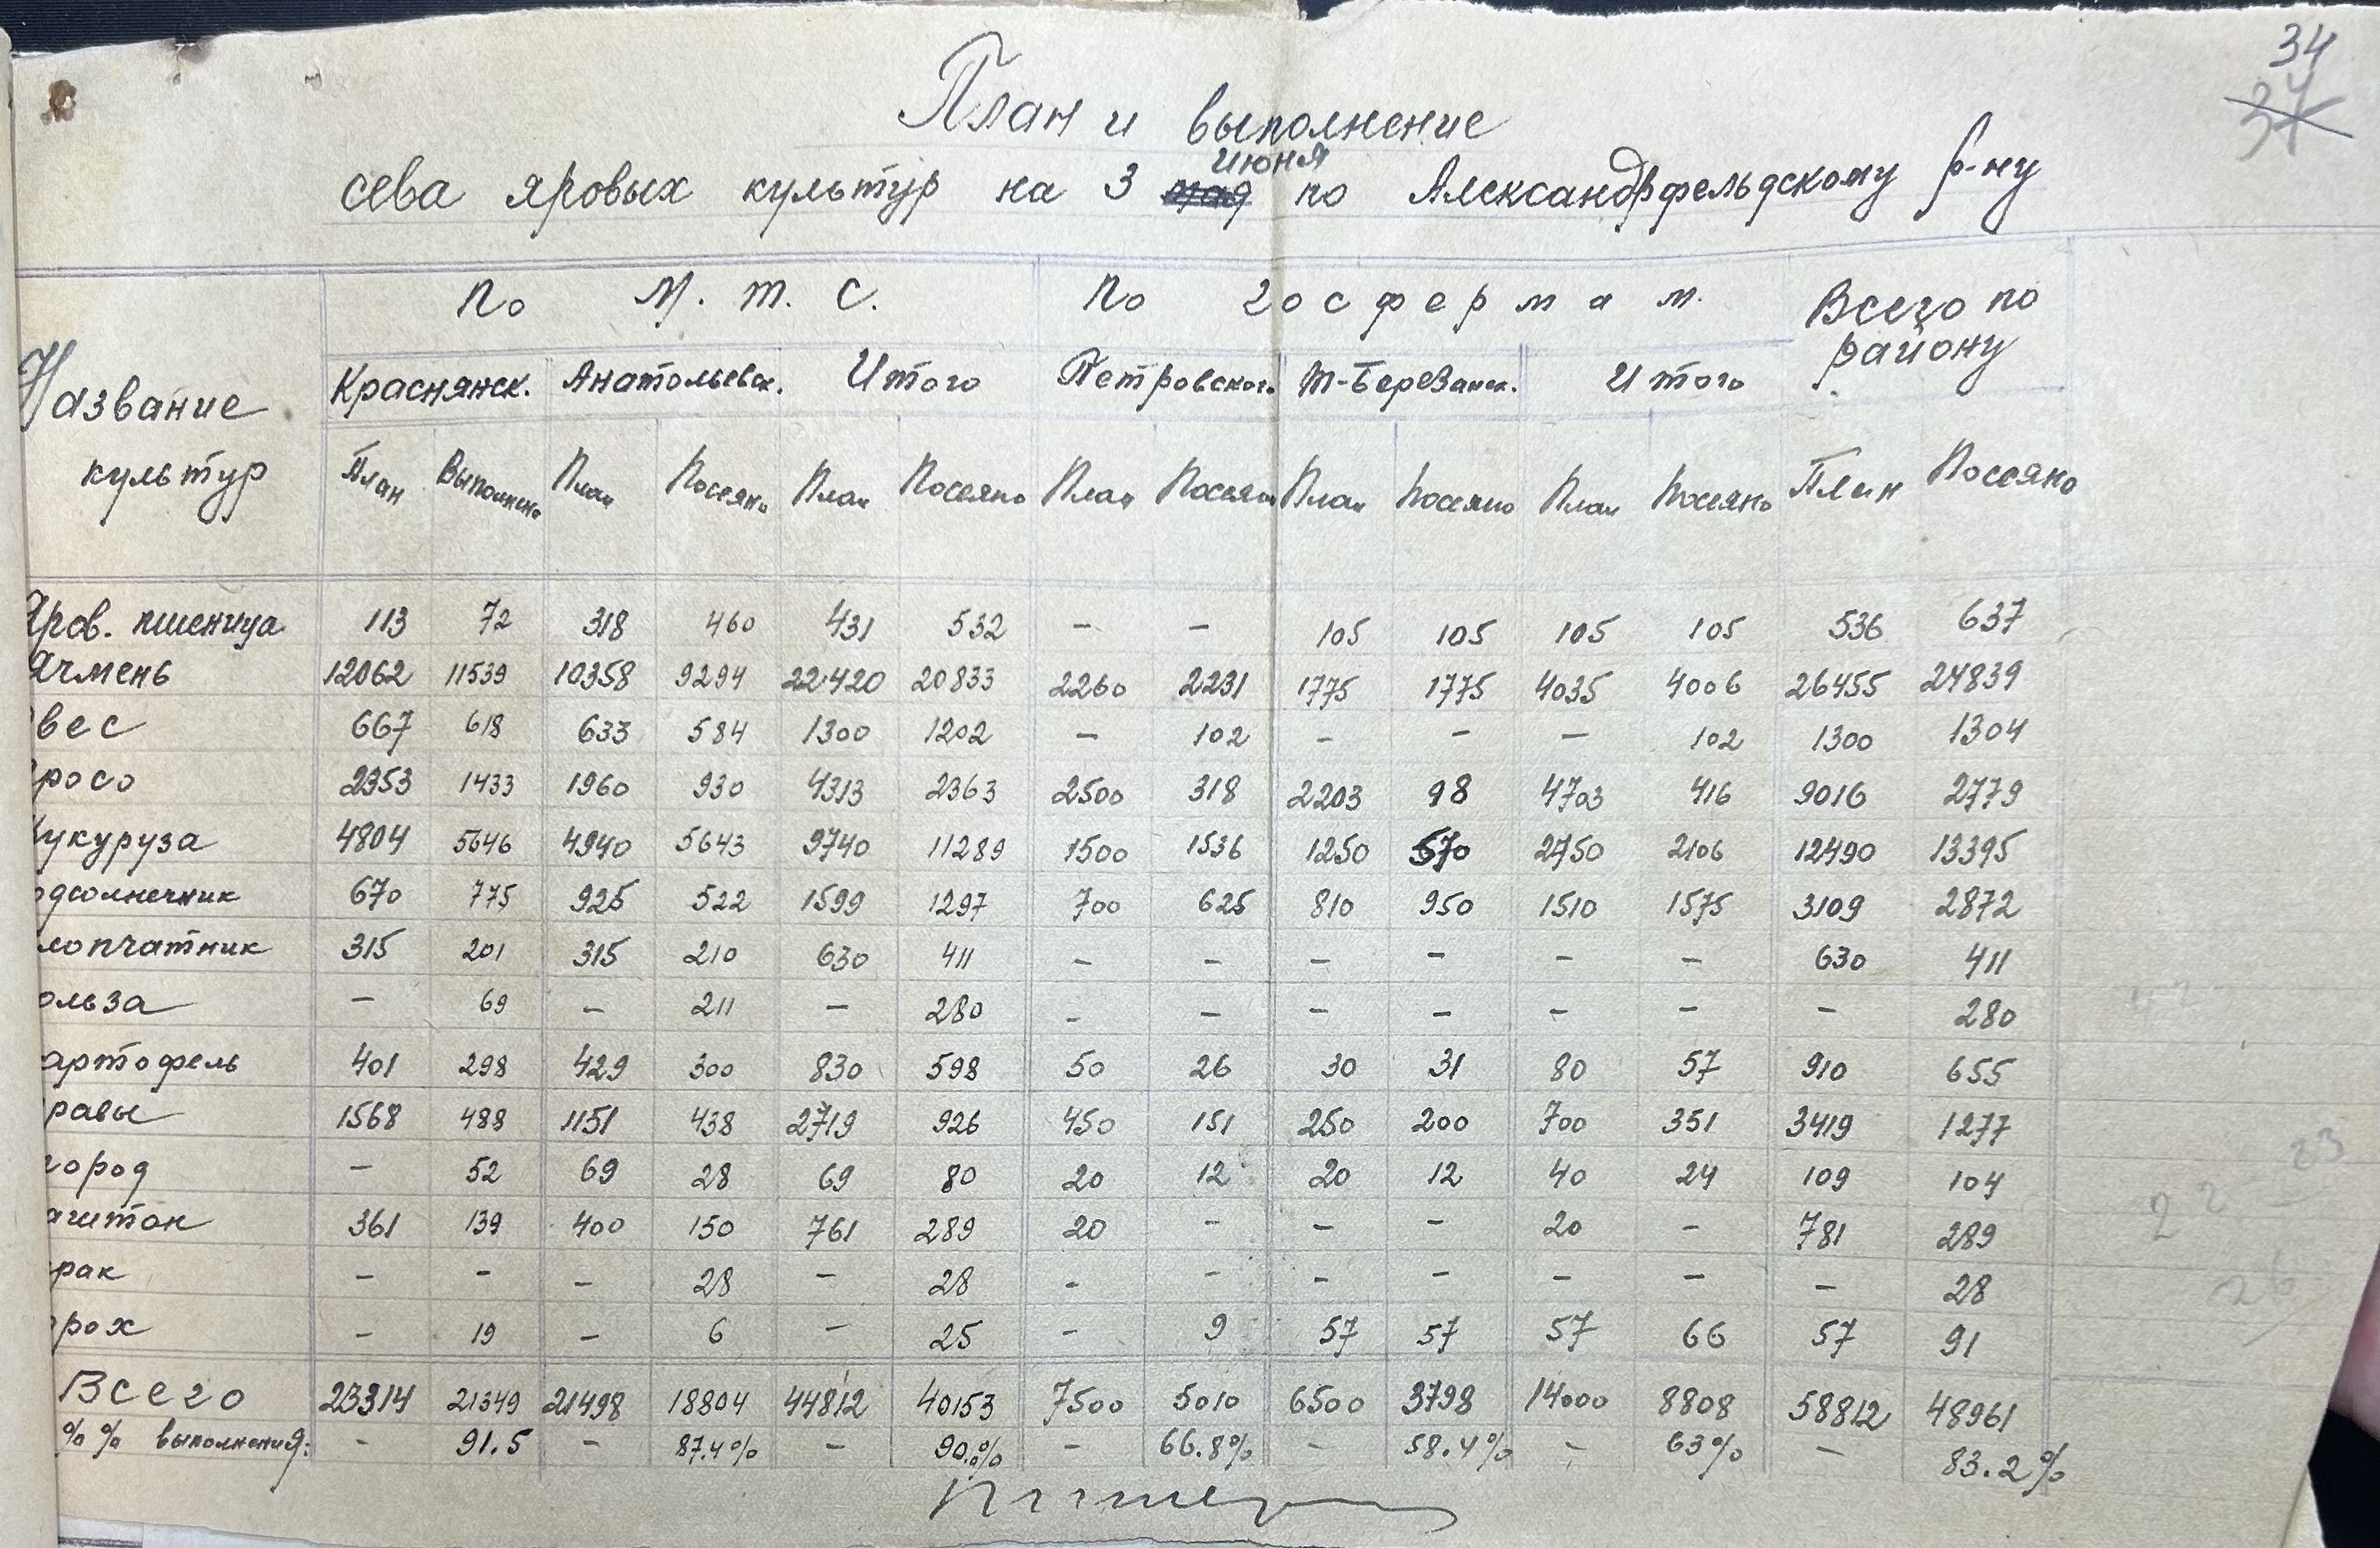 34
37
План и выполнение
июня
сева яровых культур на 3 мая по Александрфельдскому р-ну
Название культур
По М. т. С.
По госфермам.
Всего по району
Краснянск. Анатольевск. Итого Петровского Т-Березанск. Итого
План Выполнено План Посеяно План Посеяно План Посеяно План Посеяно План Посеяно План Посеяно
Яров. пшеница 113 72 318 460 431 532 – – 105 105 105 105 536 637
Ячмень 12062 11539 10358 9294 22420 20833 2260 2231 1775 1775 4035 4006 26455 24839
вес 667 618 633 584 1300 1202 – 102 – – – 102 1300 1304
росо 2353 1433 1960 930 4313 2363 2500 318 2203 98 4703 416 9016 2779
укуруза 4804 5646 4940 5643 9740 11289 1500 1536 1250 570 2750 2106 12490 13395
одсолнечник 670 775 925 522 1599 1297 700 625 810 950 1510 1575 3109 2872
лопчатник 315 201 315 210 630 411 – – – – – – 630 411
ольза – 69 – 211 – 280 – – – – – – – 280
артофель 401 298 429 300 830 598 50 26 30 31 80 57 910 655
равы 1568 488 1151 438 2719 926 450 151 250 200 700 351 3419 1277
город – 52 69 28 69 80 20 12 20 12 40 24 109 104
аштан 361 139 400 150 761 289 20 – – – 20 – 781 289
рак – – – 28 – 28 – – – – – – – 28
рох – 19 – 6 – 25 – 9 57 57 57 66 57 91
Всего 23314 21349 21498 18804 44812 40153 7500 5010 6500 3798 14000 8808 58812 48961
%% выполнения: – 91.5 – 87.4% – 90.% – 66.8% – 58.4% – 63% – 83.2%
23
22
26